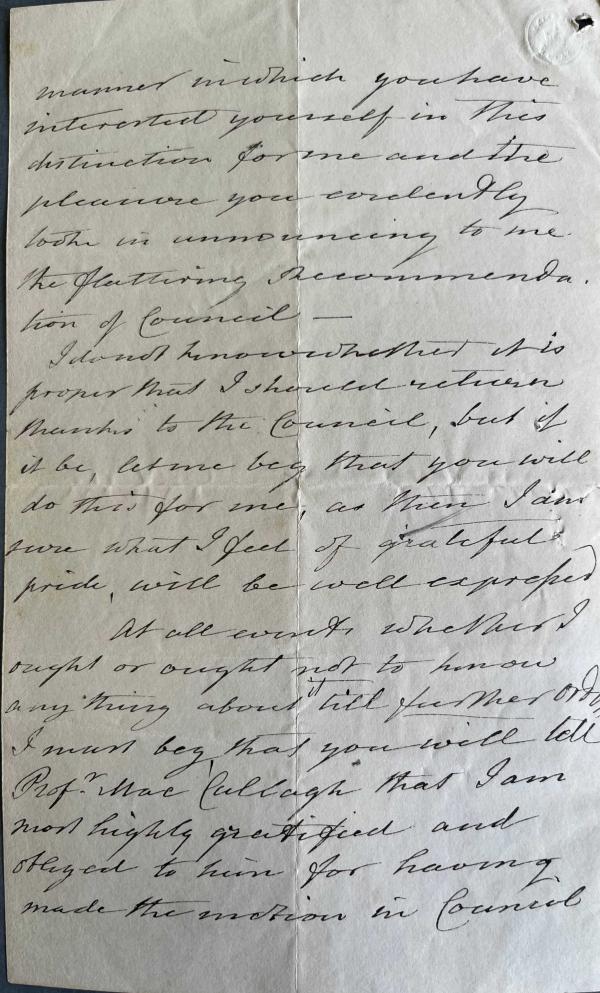 manner in which you have
interested yourself in this
distinction for me and the
pleasure you evidently
took in announcing to me
the flattering recommenda-
tion of Council —
I do not know whether it is
proper that I should return
thanks to the Council, but if
it be, let me beg that you will
do this for me, as then I am
sure what I feel of grateful
pride, will be well expressed
At all events whether I
ought or ought not to know
any thing about it till further orders
I must beg that you will tell
Profr. Mac Cullagh that I am
most highly gratified and
obliged to him for having
made the motion in Council